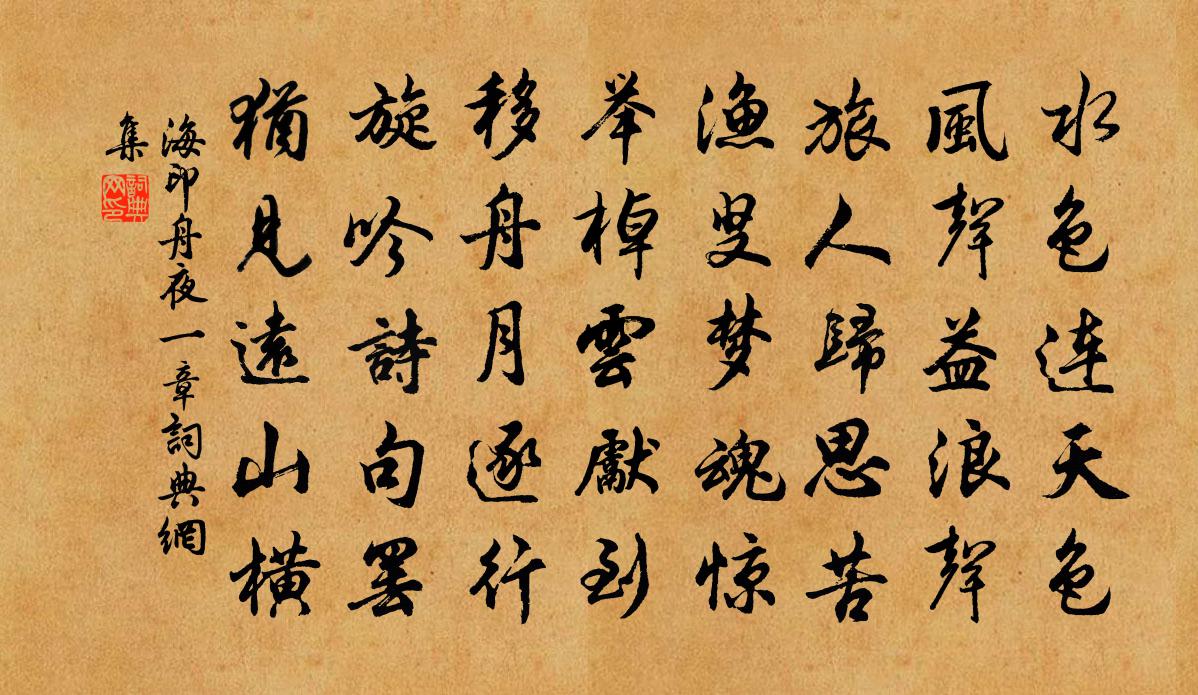 水色连天色
風聲益浪聲
旅人歸思苦
漁叟梦魂惊
举棹雲獻到
移舟月逐行
旋吟詩句罢
猶見遠山橫
海印舟夜一章詞典網
集
詞典
网印